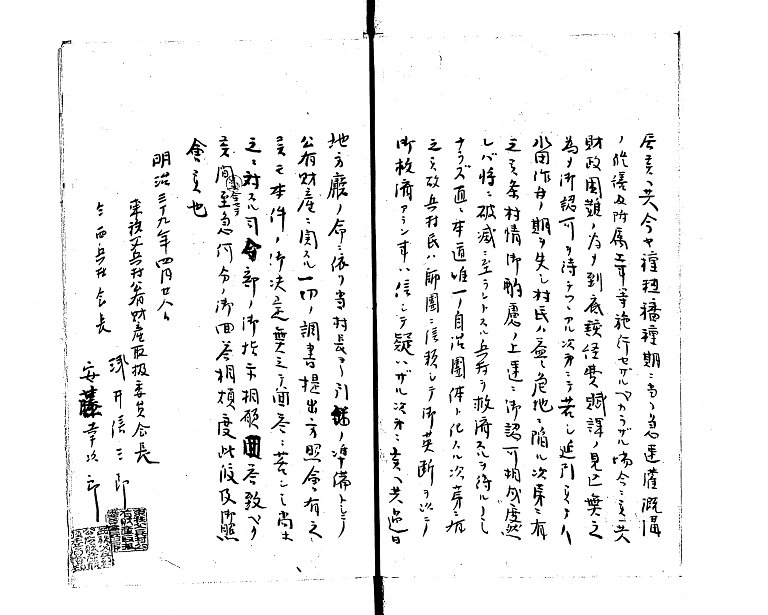 居候ヘ共今ヤ種籾播種期ニ当リ急速灌漑溝
ノ修繕及附属工事等施行セザルベカラザル場合ニ候ヘ共
財政困難ノ為メ到底該経費賦課ノ見込無之
為メ御認可ヲ待チツヽアル次第ニテ若シ遅引候ハヾ
水田作付ノ期ヲ失シ村民ハ益々危地ニ陥ル次第ニ有
之候条村情御酌慮ノ上速ニ御認可相成度然
レバ将ニ破滅ニ至ラントスル兵村ヲ救済スルヲ得ルノミ
ナラズ直ニ本道唯一ノ自治団体ト化スル次第ニ有
之候故兵村民ハ師団ニ信頼シテ御英断ヲ以テ
御救済アランコトハ信ジテ疑ハザル次第ニ候ヘ共過日
地方廰ノ命ニ依リ当村長ヨリ引継ノ準備トシテ
公有財産ニ関スル一切ノ調書提出方照会有之
候モ本件ノ御決定無之間答ニ苦シミ尚
之ニ対スル司令部ノ御指示相願回答致ベク
候間至急何分ノ御回答相煩度此段及御照
會候也
明治三十九年四月廿八日
東旭川兵村公有財産取扱委員会長
浅井信三郎
仝西兵村会長
安藤幸次郎